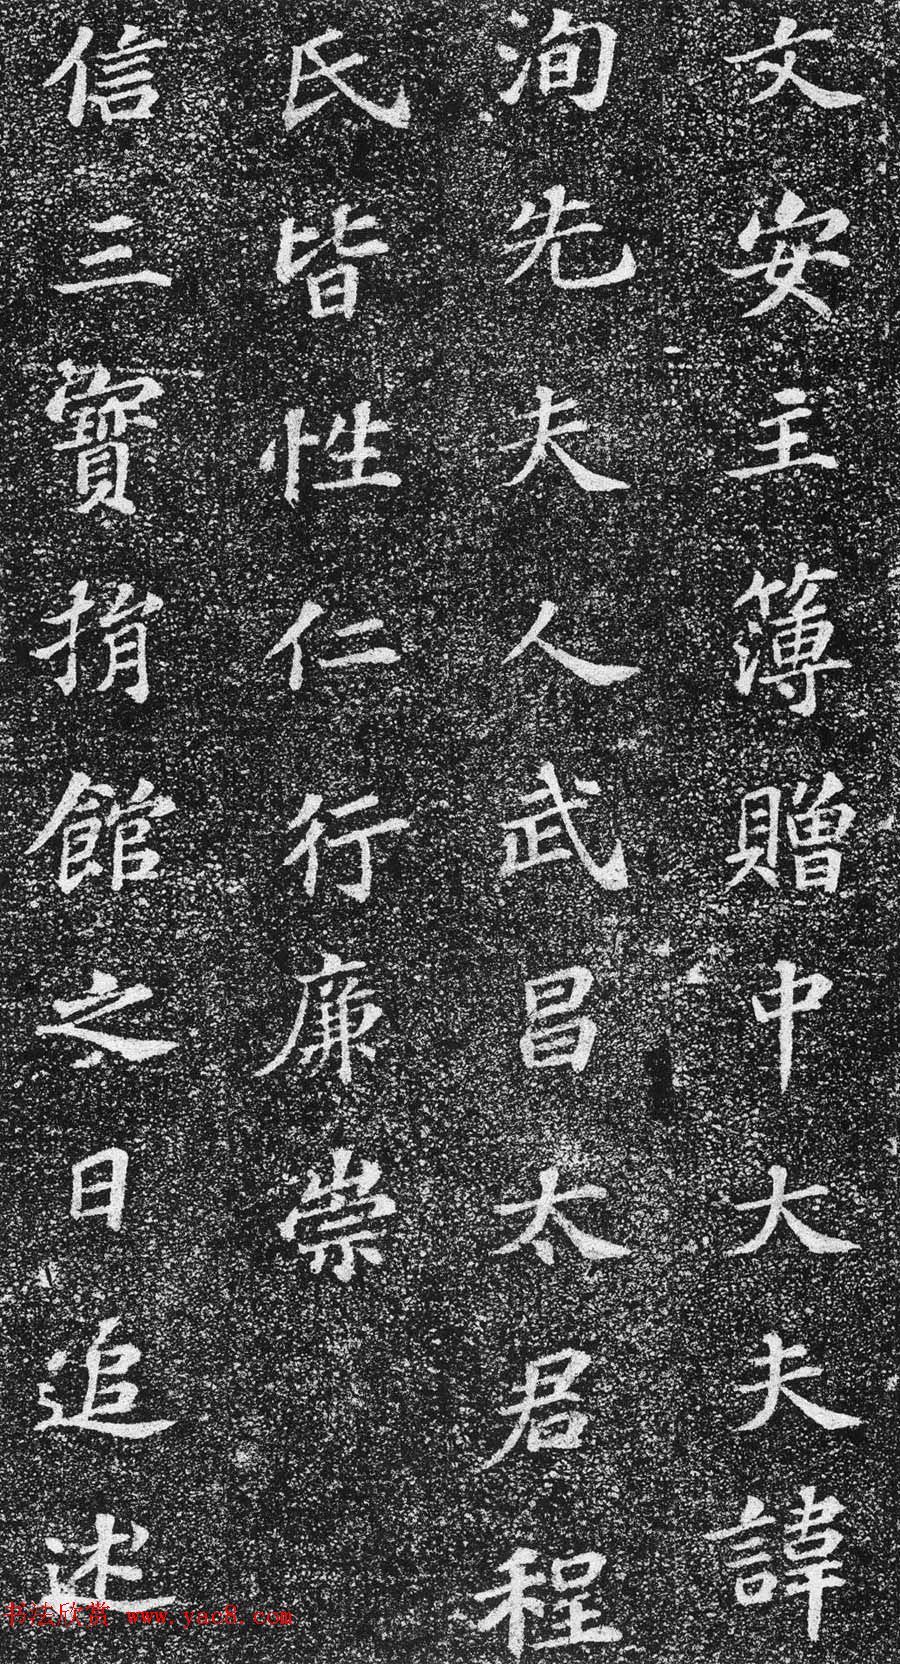 文安主簿贈中大夫諱
洵先夫人武昌太君程
氏皆性仁行廉崇
信三寶捐館之日追述
书法欣赏 www.yac8.com